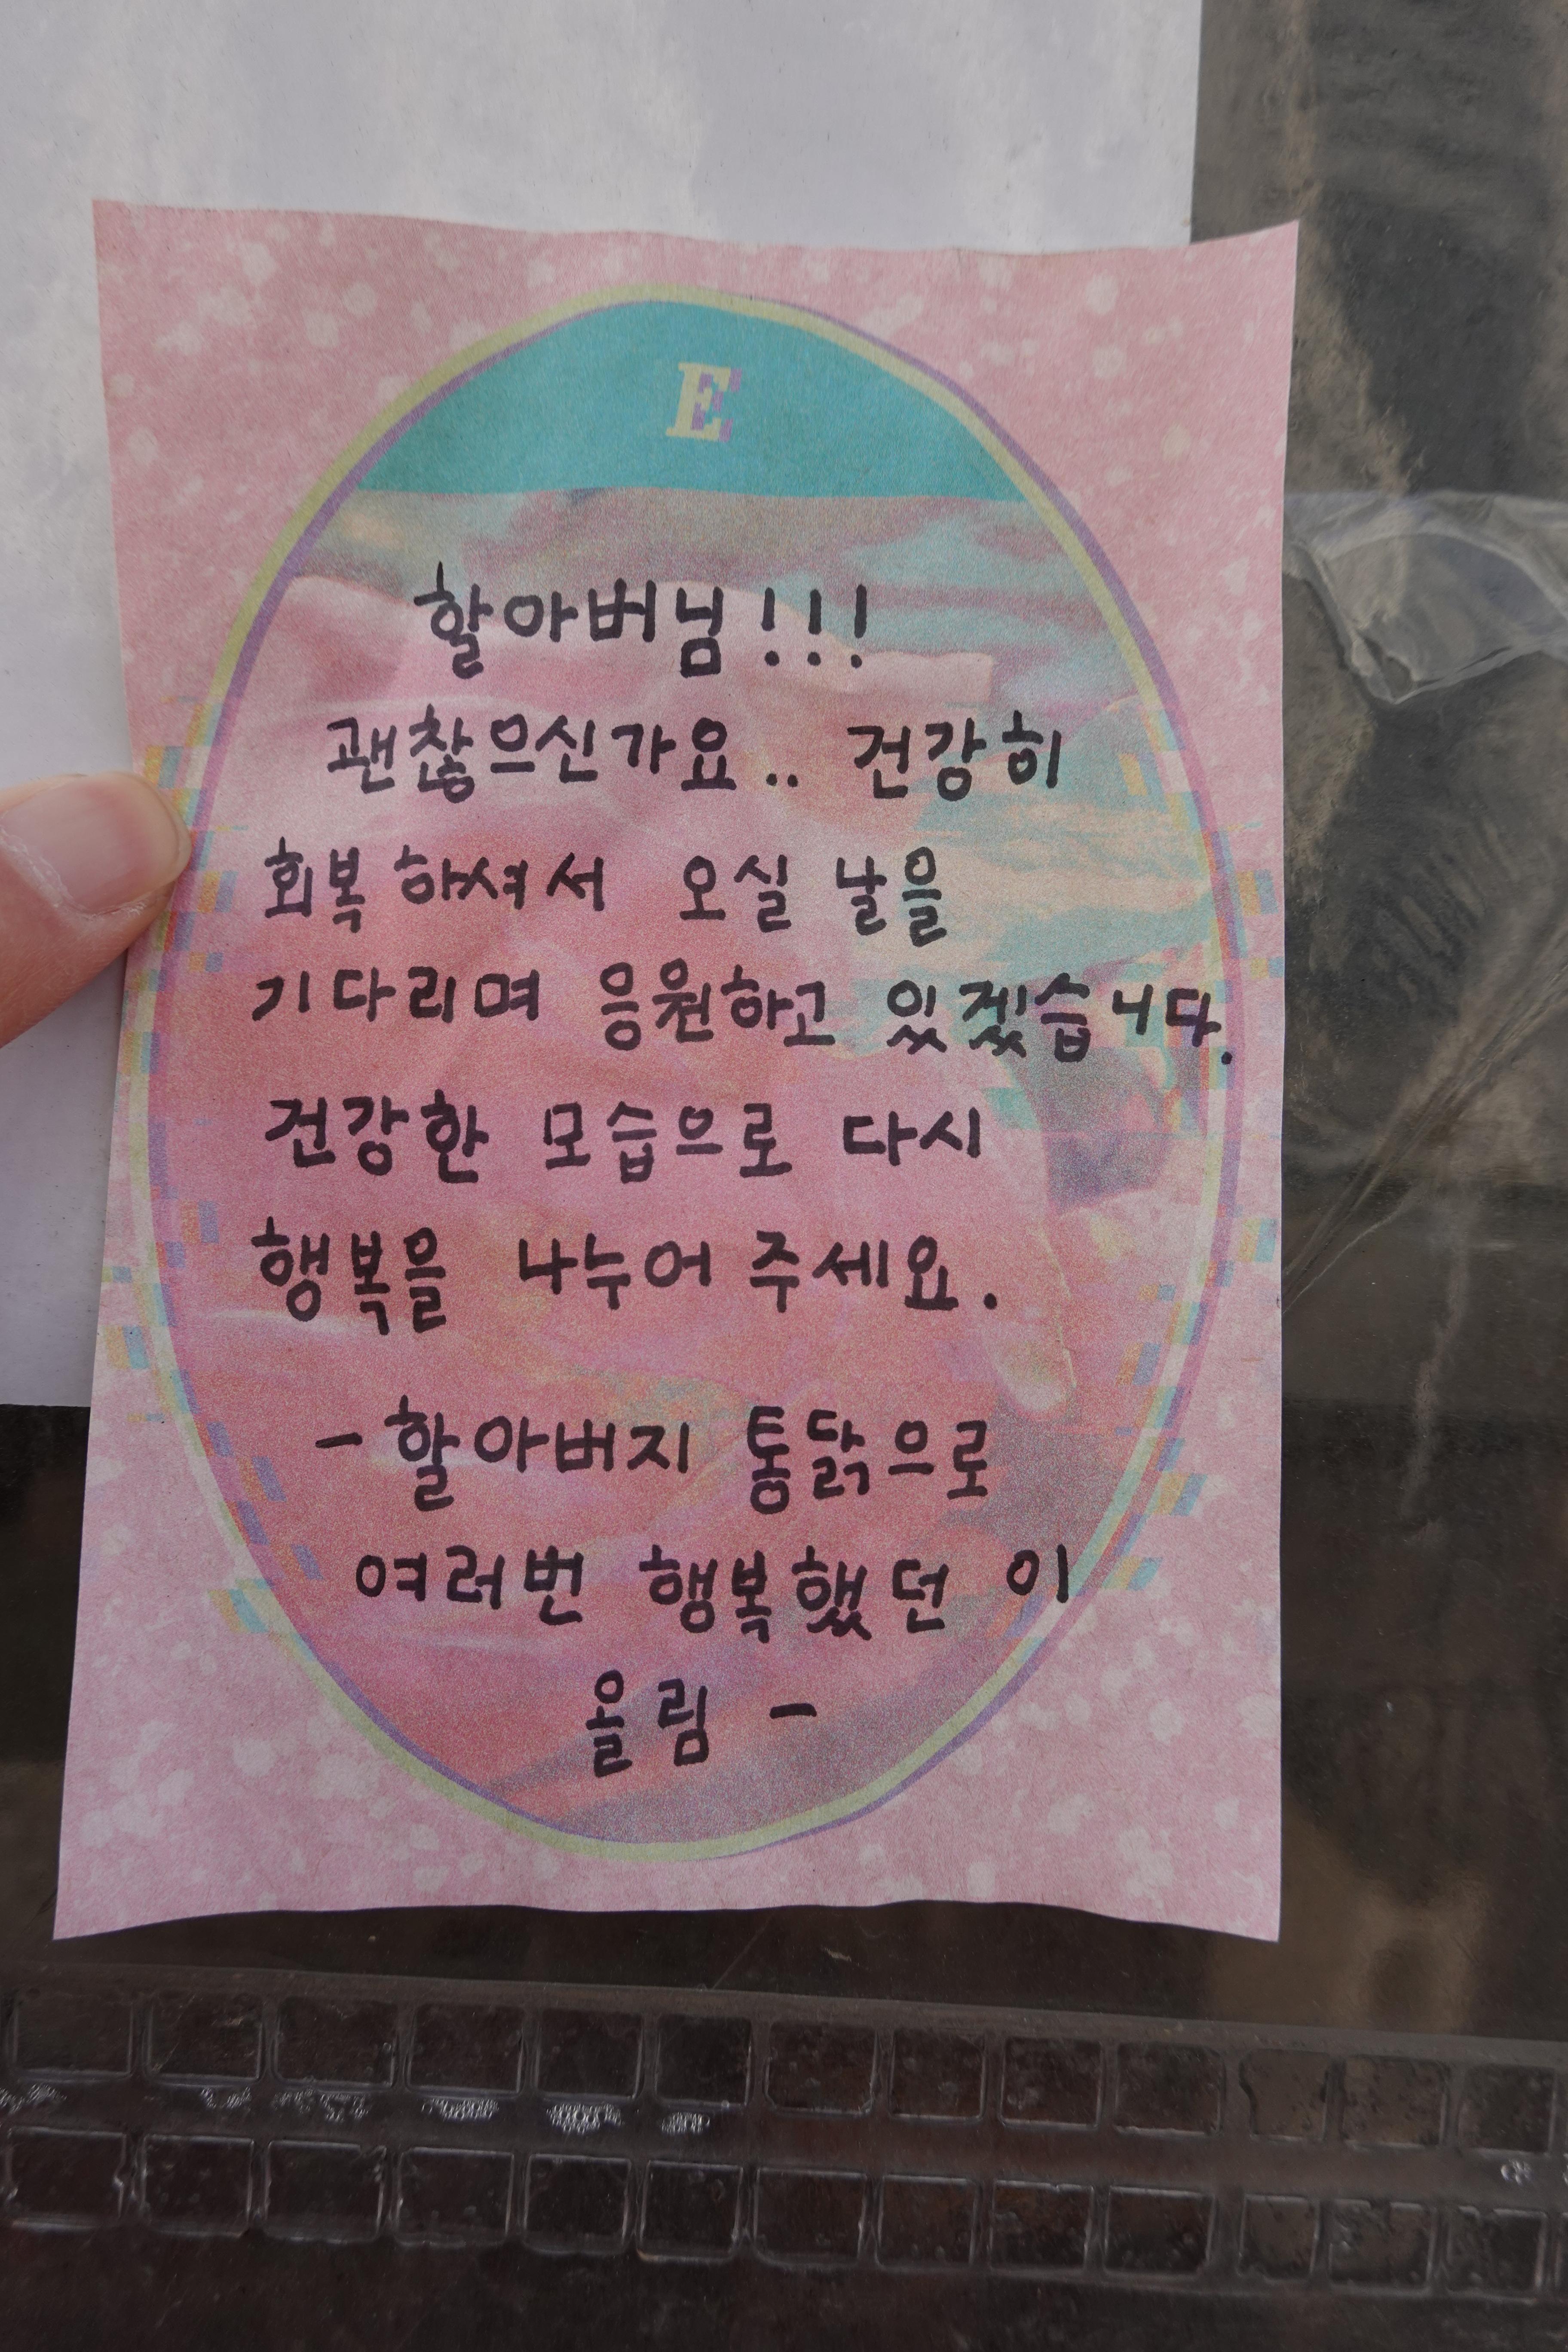 E
할아버님!!!
괜찮으신가요.. 건강히
회복하셔서 오실 날을
기다리며 응원하고 있겠습니다.
건강한 모습으로 다시
행복을 나누어 주세요.
- 할아버지 통닭으로
여러번 행복했던 이
올림 -